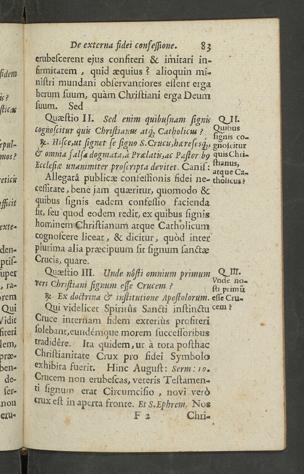 De externa fidei confessione. 83
erubescerent ejus confiteri & imitari in-
firmitatem, quid æquius? alioquin mi-
nistri mundani observantiores essent erga
herum suum, quàm Christiani erga Deum
suum. Sed
Quæstio II. Sed enim quibusnam signis
cognoscitur quis Christianus atq; Catholicus?
℞. Hisce, ut signet se signo S. Crucis, hæreses q;
& omnia falsa dogmata, à Prælatis, ac Pastor bo
Ecclesiæ unanimiter proscripta devitet. Canis:
Allegatâ publicæ confessionis fidei ne-
cessitate, bene jam quæritur, quomodo &
quibus signis eadem confessio facienda
sit, seu quod eodem redit, ex quibus signis
hominem Christianum atque Catholicum
cognoscere liceat, & dicitur, quòd inter
plurima alia præcipuum sit signum sanctæ
Crucis, quare.
Quæstio III. Unde nôsti omnium primum
veri Christiani signum esse Crucem?
℞. Ex doctrina & institutione Apostolorum.
Qui videlicet Spiritûs Sancti instinctu
Cruce internam fidem exteriùs profiteri
solebant, eundémque morem successoribus
tradidêre. Ita quidem, ut à tota posthac
Christianitate Crux pro fidei Symbolo
exhibita fuerit. Hinc August: Serm: 10.
Crucem non erubescas, veteris Testamen-
ti signum erat Circumcisio, novi verò
crux est in aperta fronte. Et S. Ephrem. Nos
F 2 Chri-
Q II.
Quibus
signis co-
gnoscitur
quis Chri-
stianus,
atque Ca-
tholicus?
Q. III.
Unde nô-
sti primũ
esse Cru-
cem?